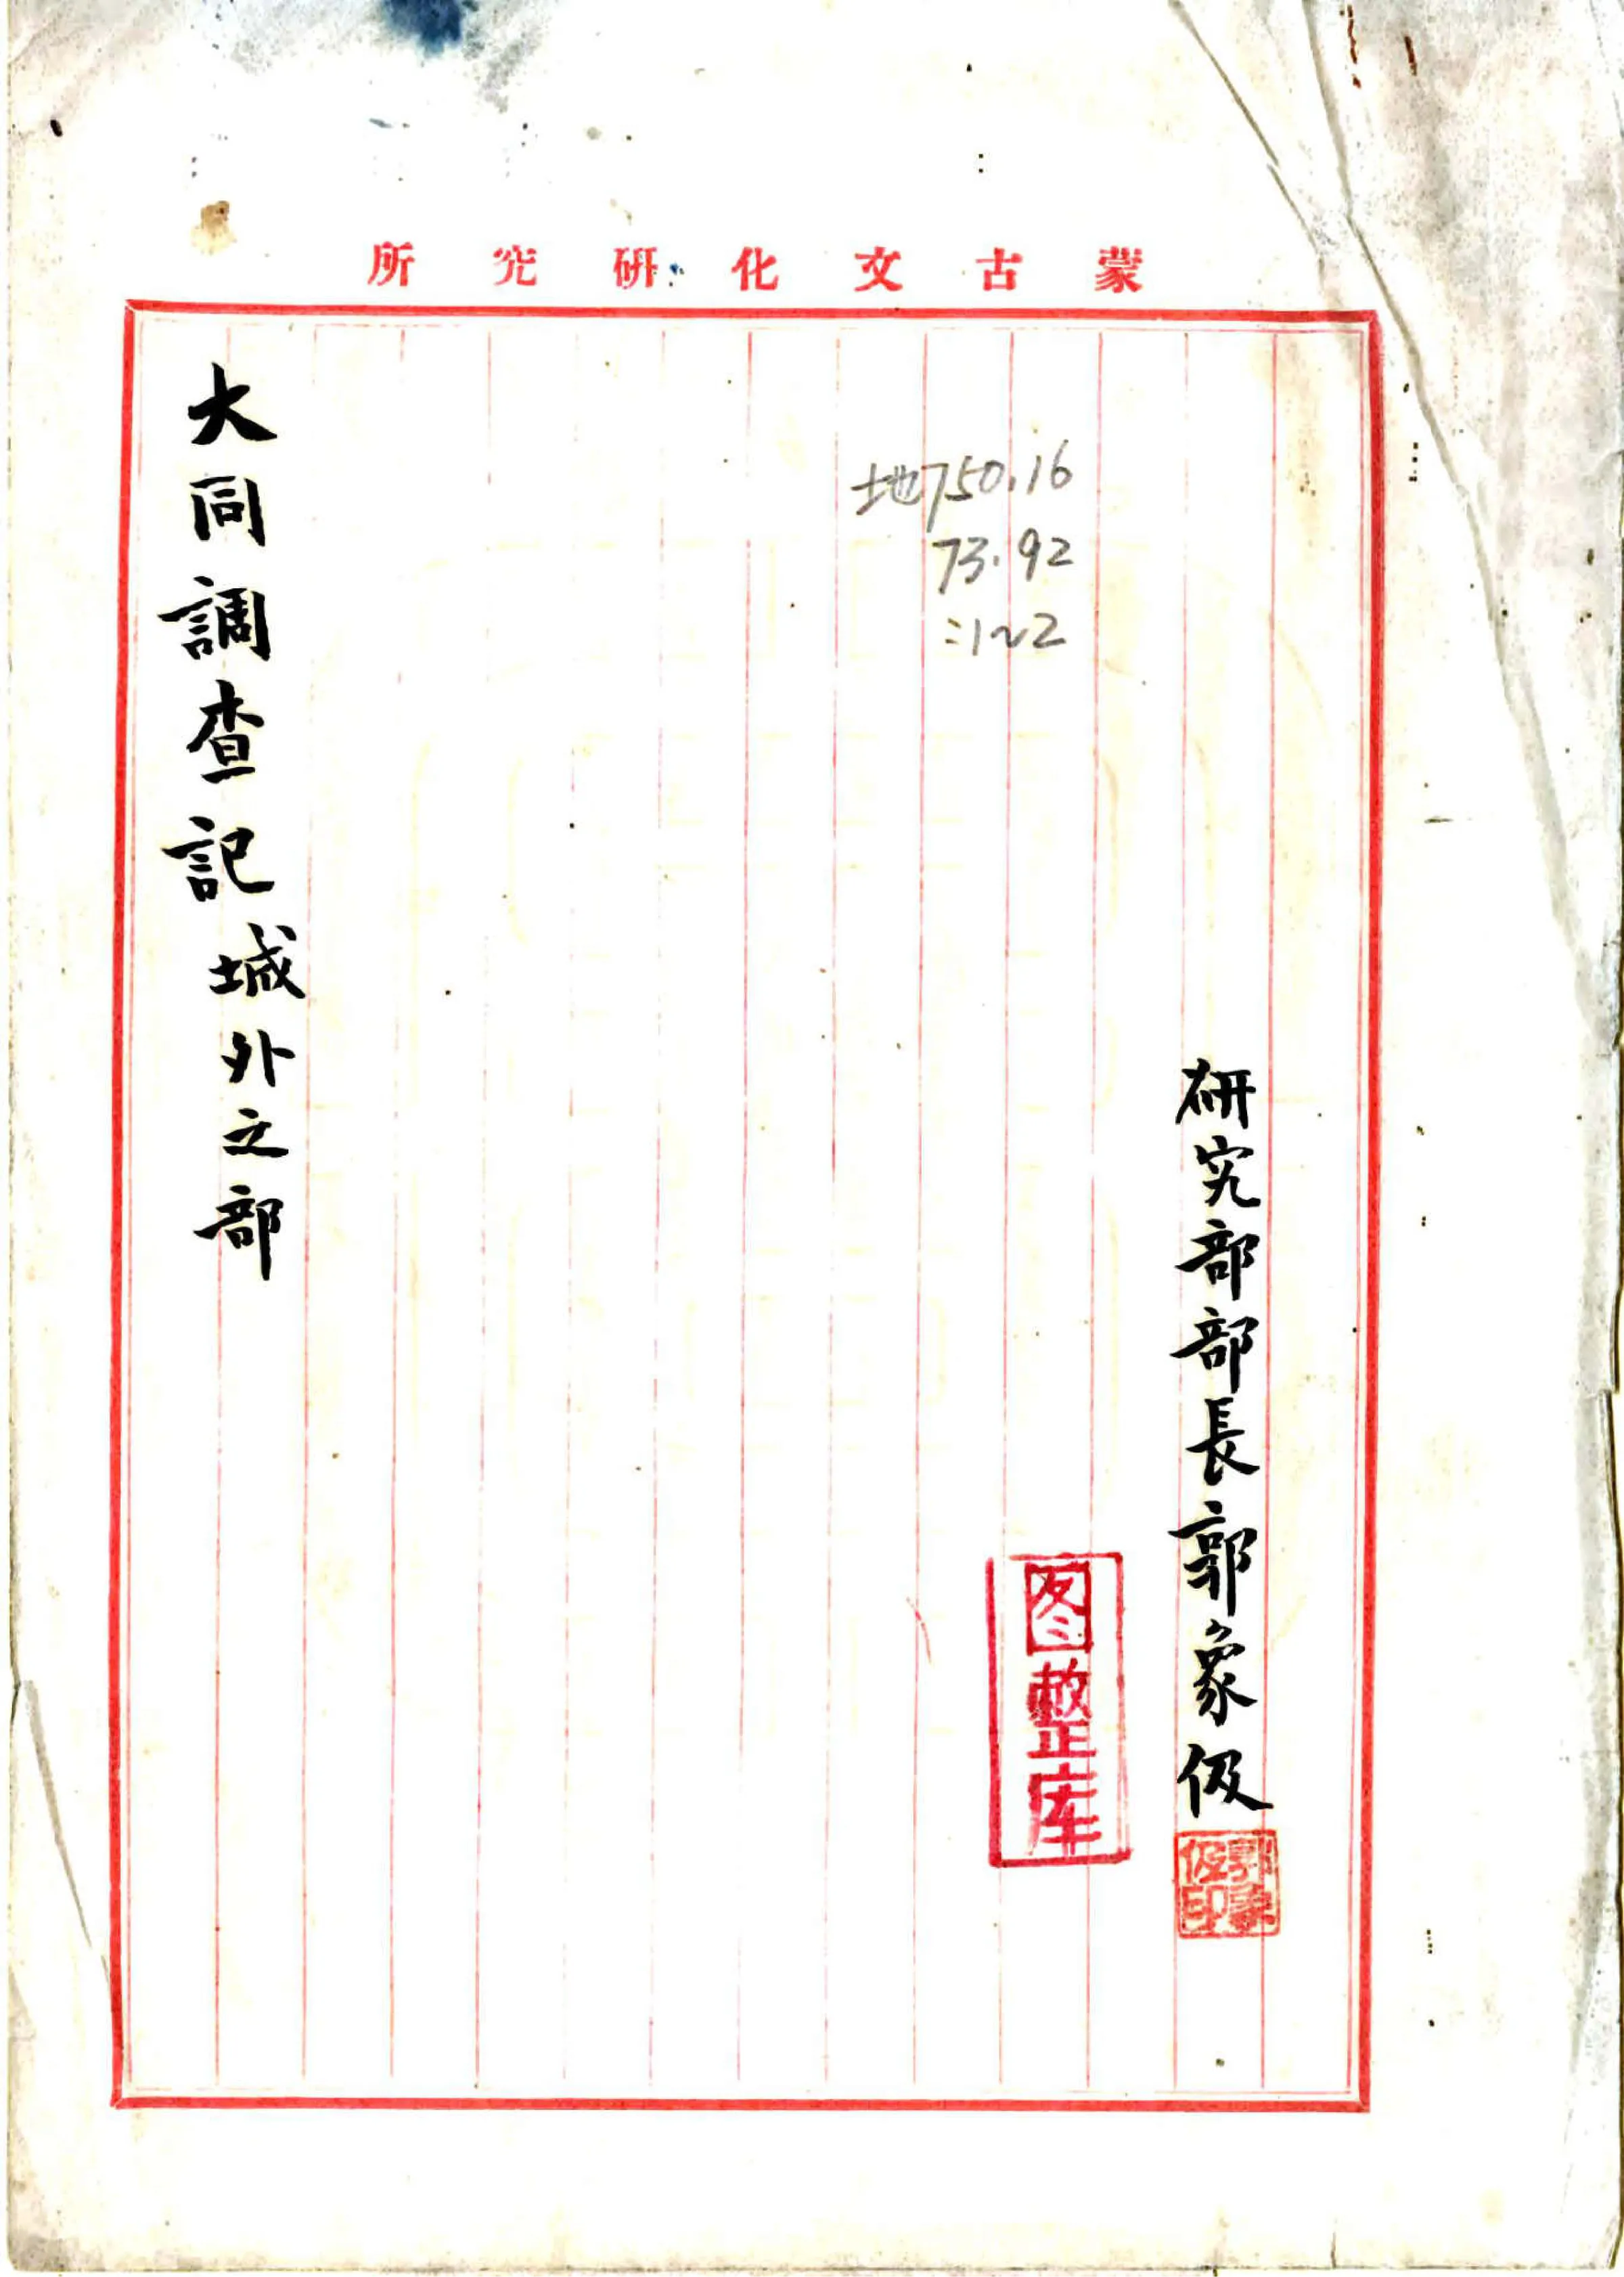 蒙古文化研究所
研究部部長郭象伋
郭象
伋印
图整库
地750.16
73.92
:1~2
大同調查記城外之部